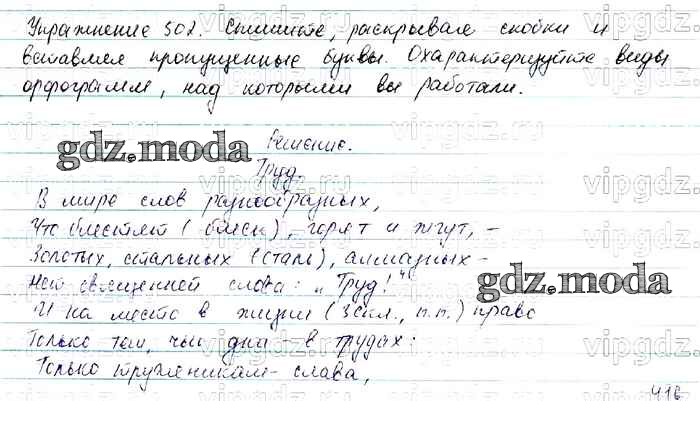 Упражнение 502. Спишите, раскрывая скобки и
вставляя пропущенные буквы. Охарактеризуйте виды
орфограмм, над которыми вы работали.
Решение.
gdz.moda
Труд.
В мире слов разнообразных,
Что блестят (блеск), горят и жгут, -
Золотых, стальных (сталь), алмазных -
Нет священней слова: „Труд!"
gdz.moda
И на место в жизни (3 скл., п.п.) право
Только тем, чьи дни - в трудах:
Только труженикам - слава,
416
vipgdz.ru